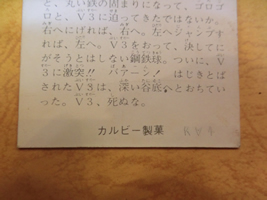 と、丸い鉄の固まりになって、ゴロゴ
ロと、V3に迫ってきたではないか。
右へにげれば、右へ。左へジャンプす
れば、左へ。V3をおって、決してに
がそうとはしない鋼鉄球。ついに、V
3に激突!! バアーン! はじきとば
されたV3は、深い谷底へとおちてい
った。V3、死ぬな。
カルビー製菓